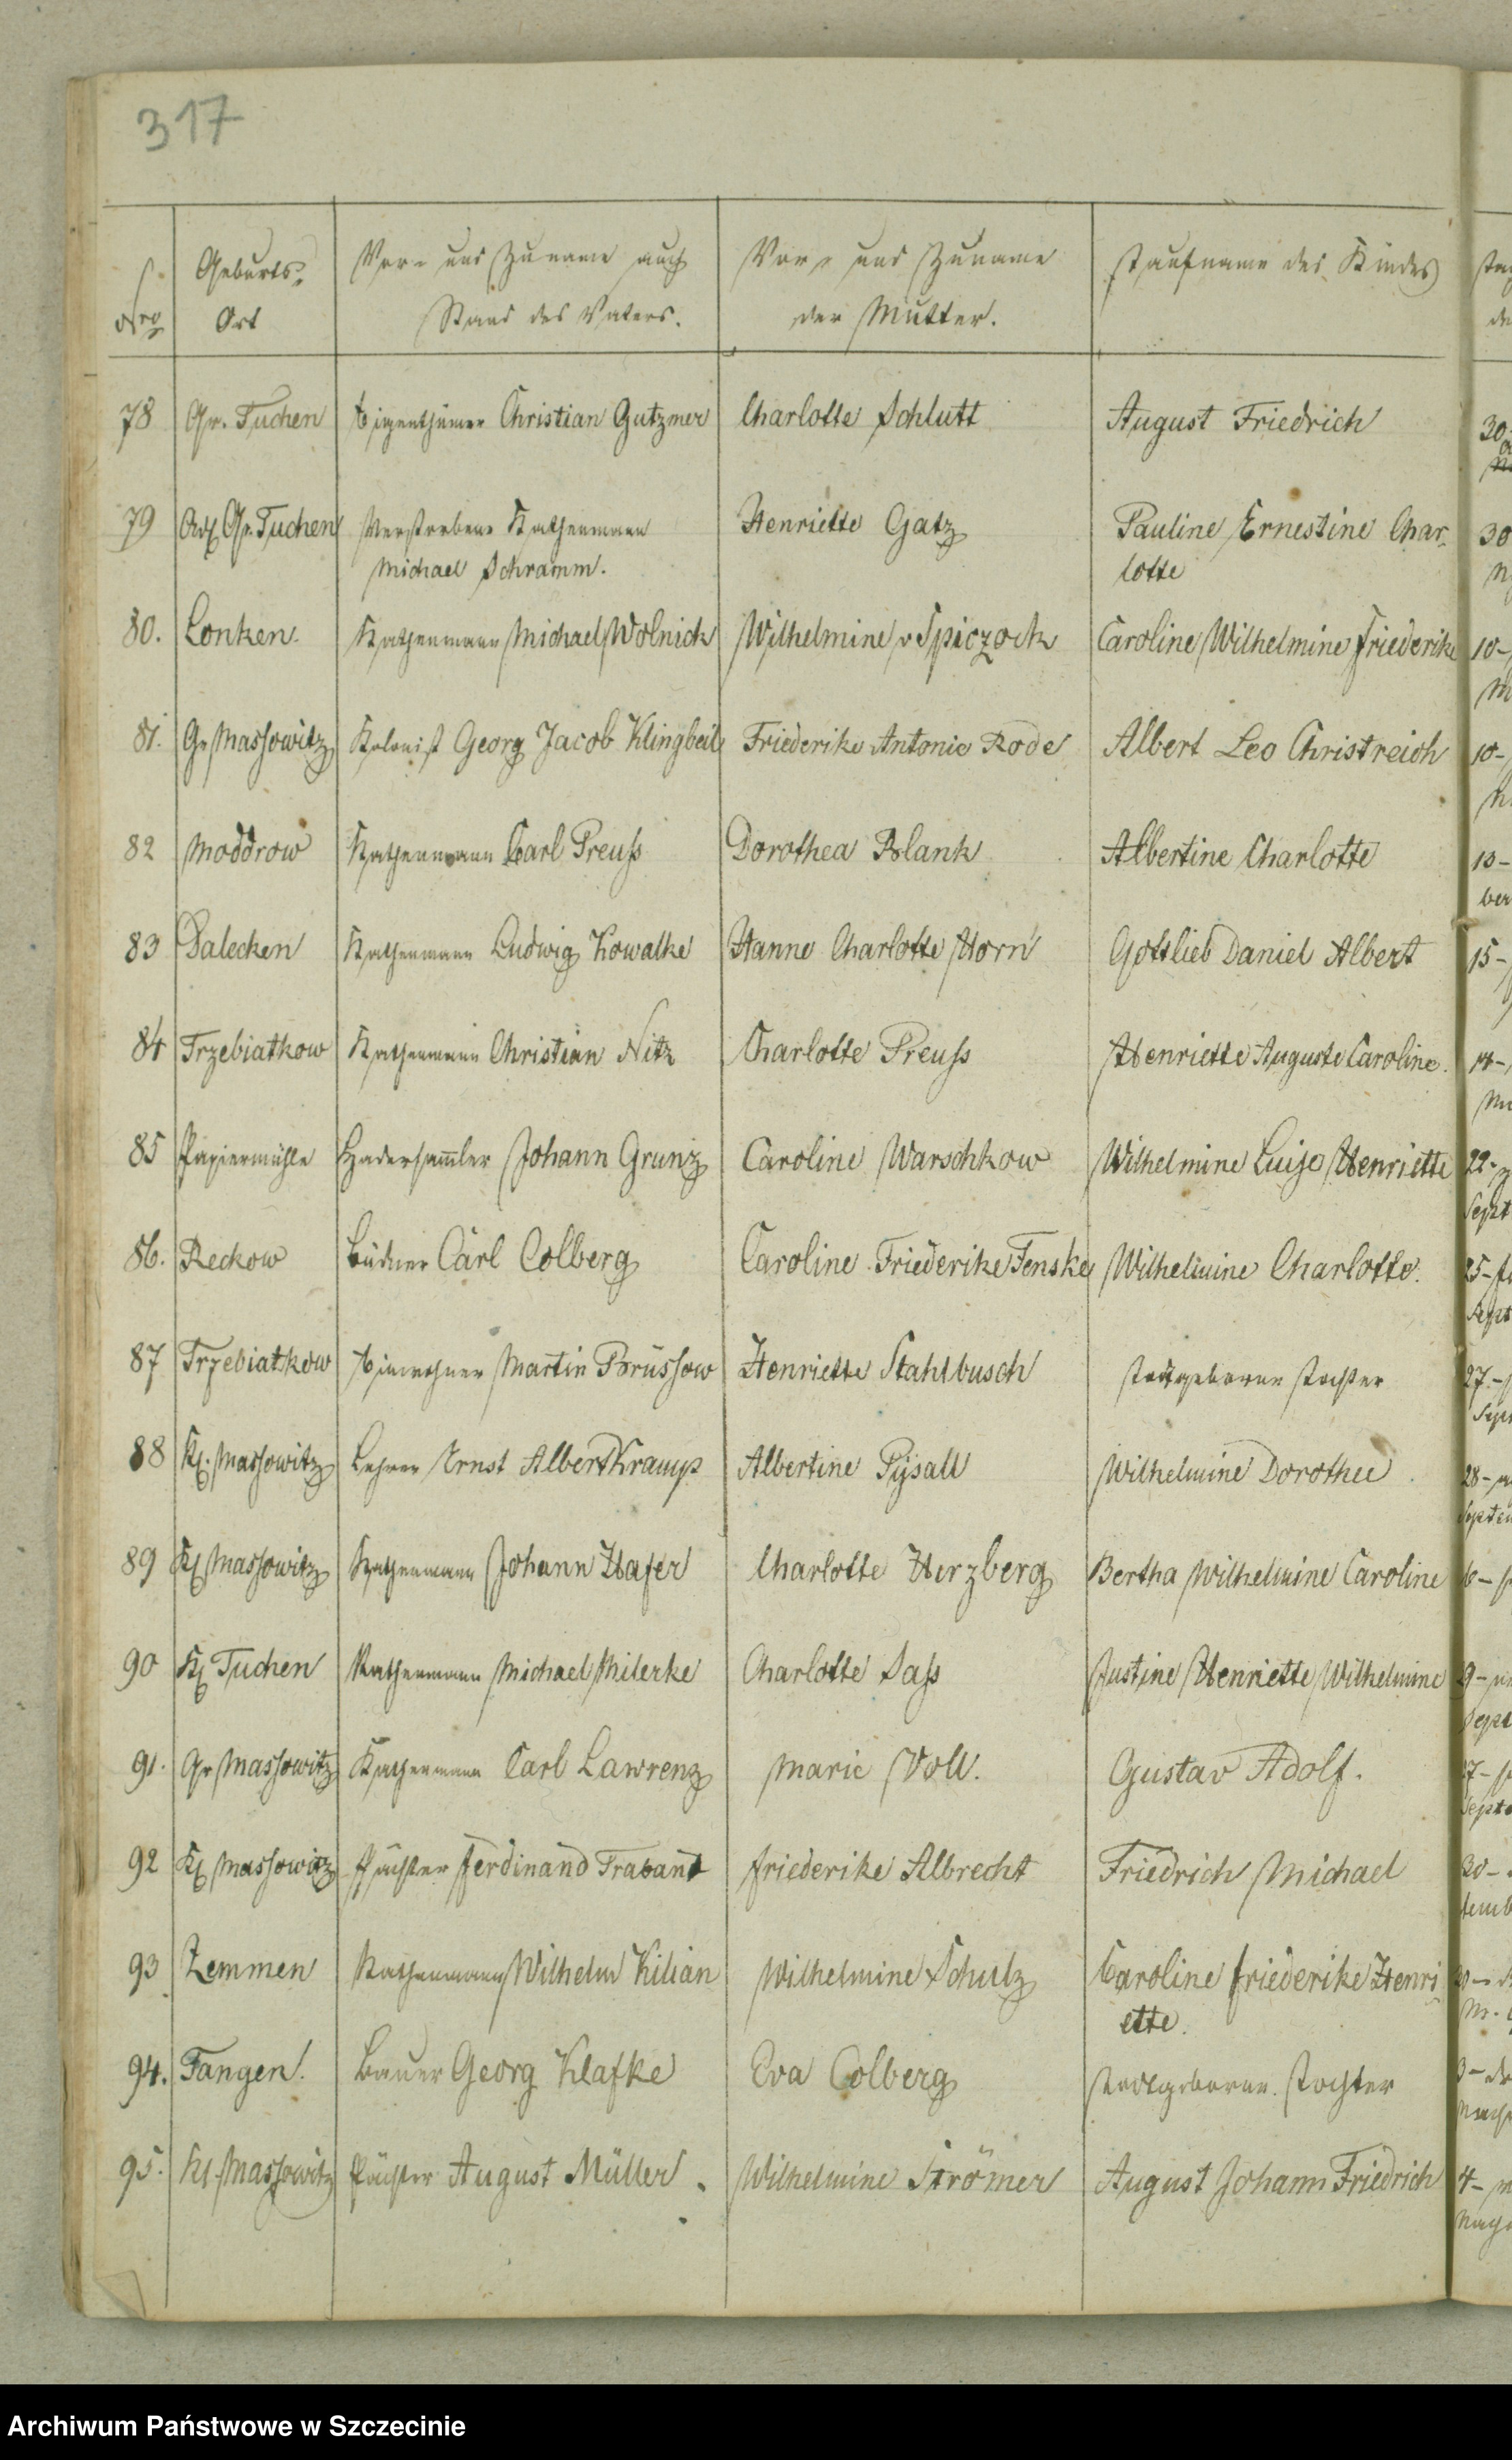 317
No Geburts- Ort Vor- und Zuname auch Stand des Vaters. Vor- und Zuname der Mutter. Taufname des Kindes
78 Gr. Tuchen Eigenthümer Christian Gutzmer Charlotte Schlutt August Friedrich
79 Adl. Gr. Tuchen Verstorbene Kathenmann Henriette Gatz Pauline Ernestine Char-
Michael Schramm. lotte
80. Lonken. Kathenmann Michael Wolnick Wilhelmine v Spiczock Caroline Wilhelmine Friederike
81. Gr Massowitz Kolonist Georg Jacob Klingbeil Friederike Antonie Rode Albert Leo Christreich
82 Moddrow Kathenmann Carl Preuss Dorothea Blank Albertine Charlotte
83 Dalecken Kathenmann Ludwig Kowalke Hanne Charlotte Horn Gottlieb Daniel Albert
84 Trzebiatkow Kathenmann Christian Nitz Charlotte Preuss Henriette Auguste Caroline.
85 Papiermühle Hadersam̅ler Johann Grunz Caroline Warschkow Wilhelmine Luise Henriette
86. Reckow Büdner Carl Colberg Caroline Friederike Fenske Wilhelmine Charlotte.
87 Trzebiatkow Einwohner Martin Brüssow Henriette Stahlbusch Todtgeborne Tochter
88 Kl. Massowitz Lehrer Ernst Albert Kramp Albertine Pysall Wilhelmine Dorothee
89 Kl Massowitz Kathenmann Johann Hafer Charlotte Herzberg Bertha Wilhelmine Caroline
90 Kl Tuchen Kathenmann Michael Milerke Charlotte Sass Justine Henriette Wilhelmine
91. Gr Massowitz Kathenmann Carl Lawrenz Marie Voll. Gustav Adolf.
92 Kl Massowitz Pächter Ferdinand Traband Friederike Albrecht Friedrich Michael
93 Zemmen Kathenmann Wilhelm Kilian Wilhelmine Schulz Caroline Friederike Henri
ette.
94. Tangen. Bauer Georg Klafke Eva Colberg Todtgeborne. Tochter
95. Kl. Massowitz Pächter August Müller. Wilhelmine Strömer August Johann Friedrich
Archiwum Państwowe w Szczecinie